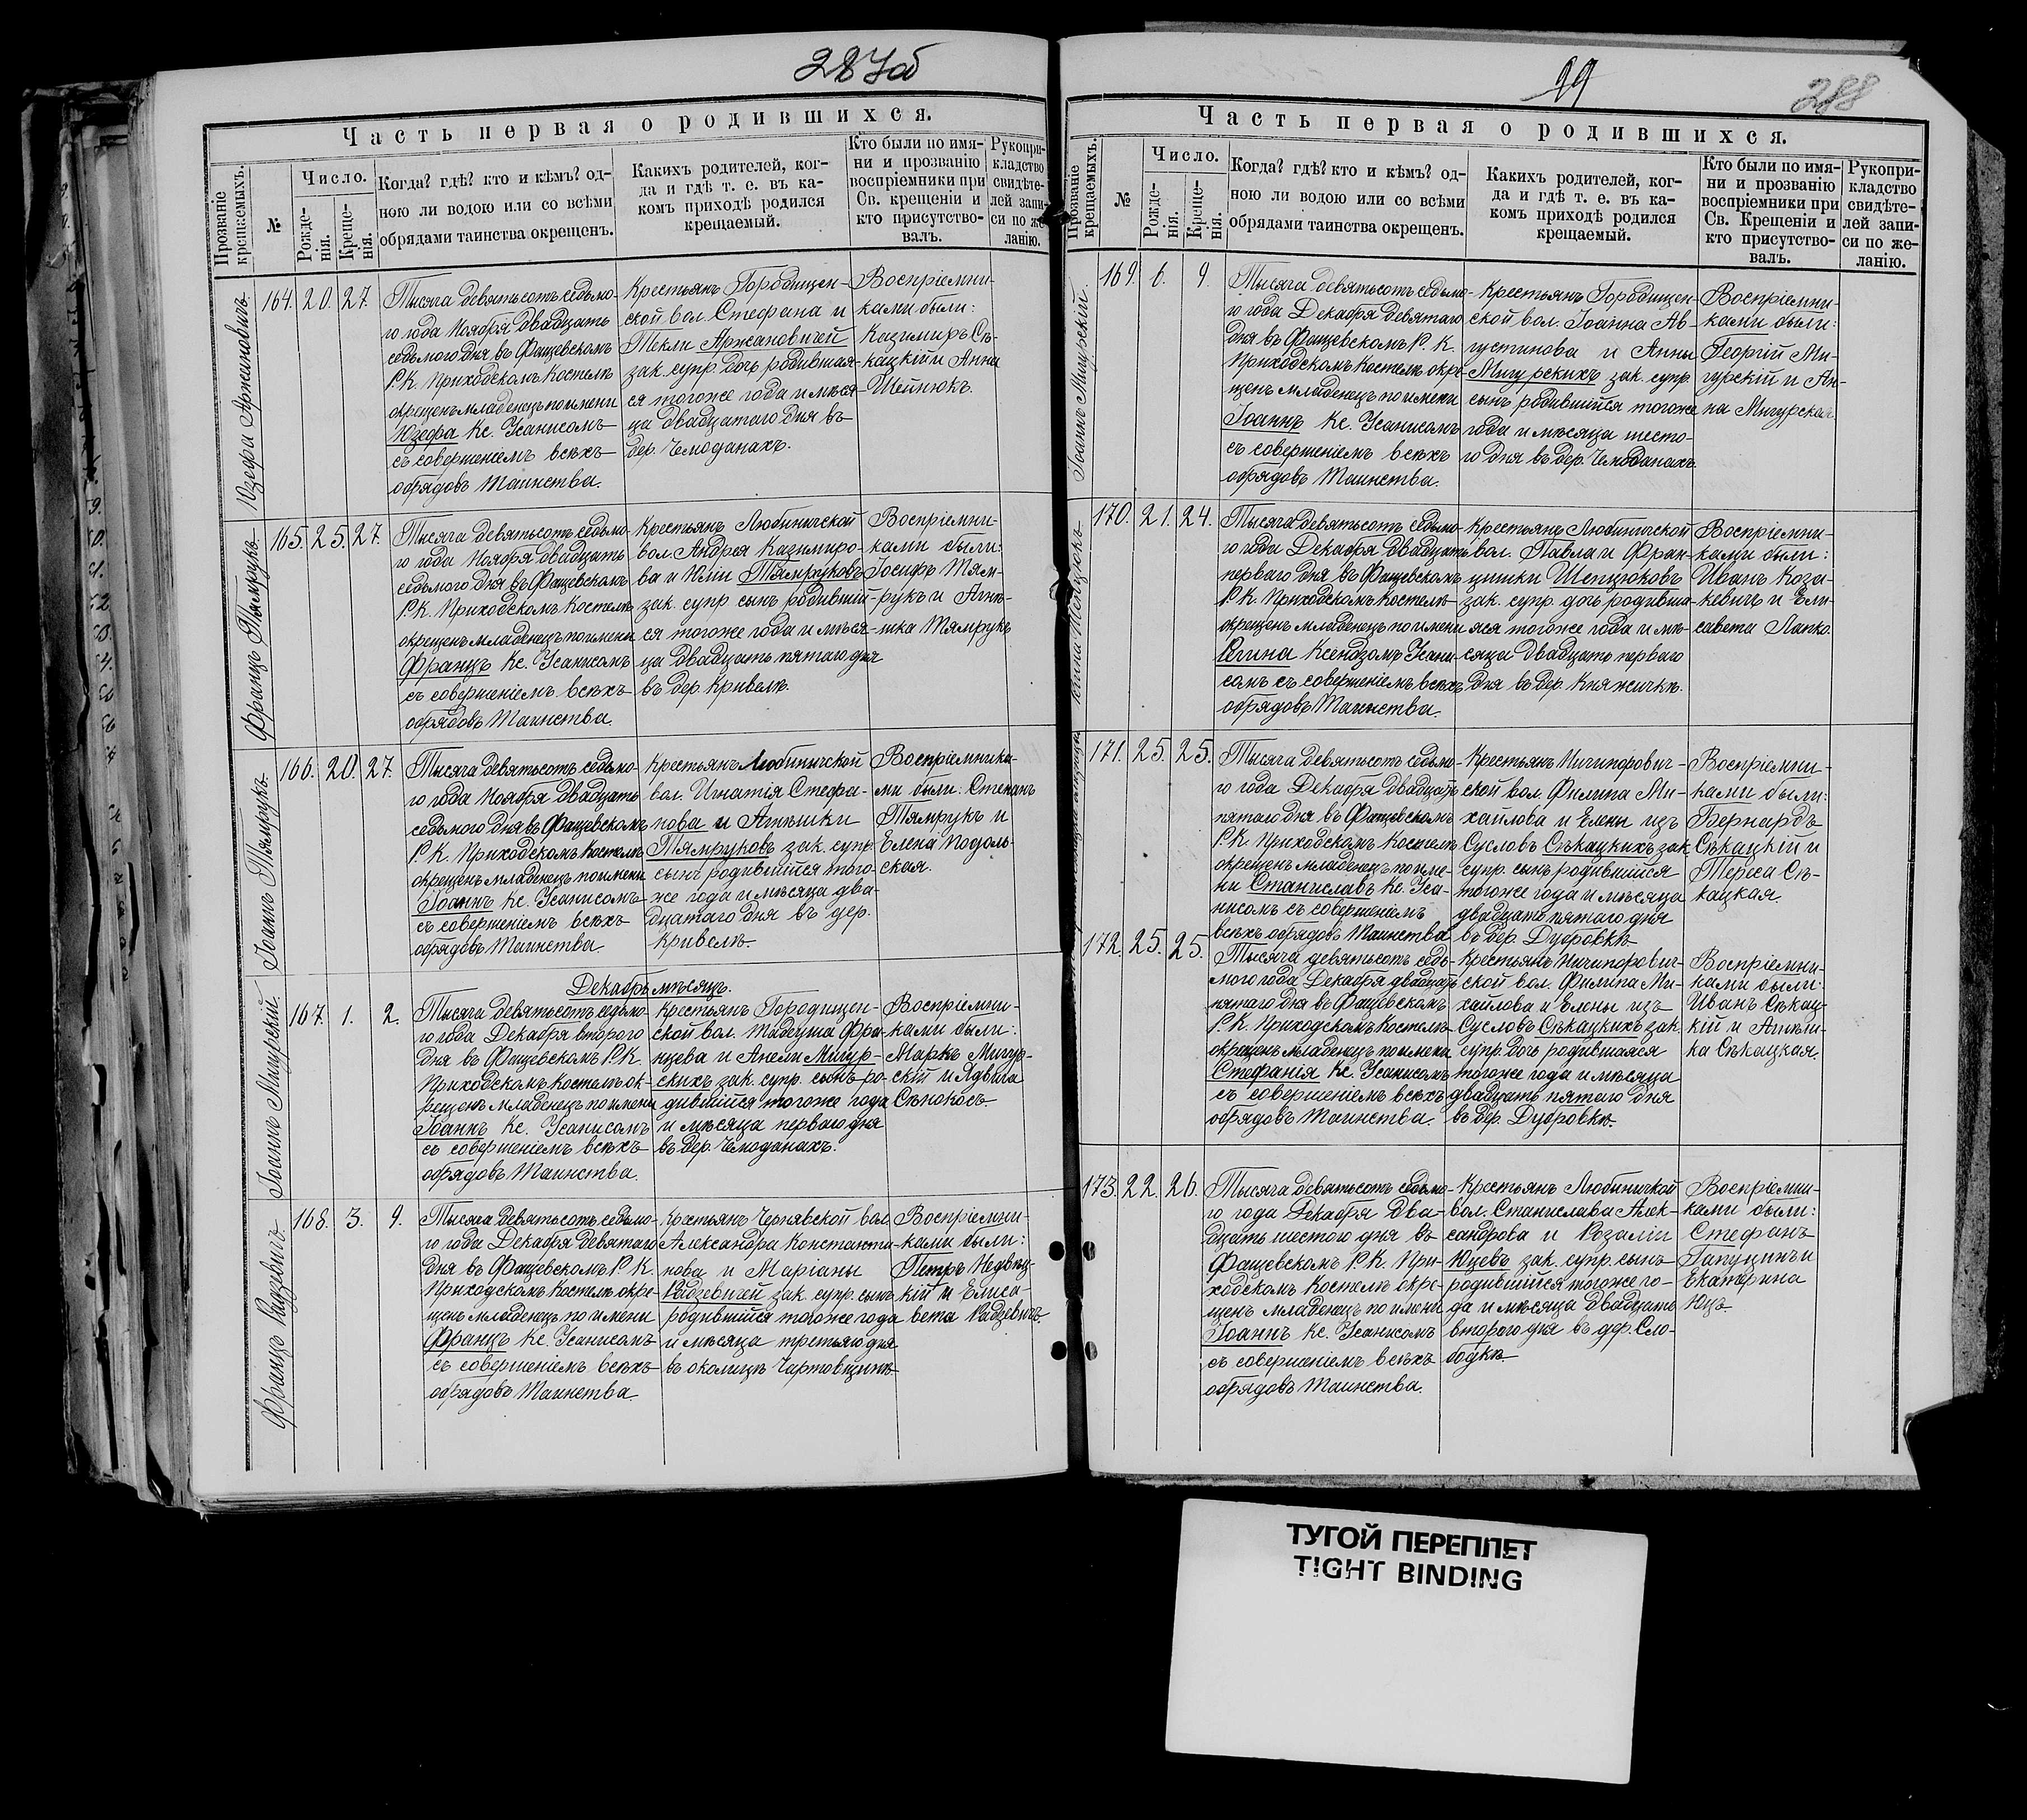 287об
Часть первая о родившихся.
Прозваніе крещаемыхъ.
№
Число.
Рожде-
нія.
Креще-
нія.
Когда? гдѣ? кто и кѣмъ? од-
ною ли водою или со всѣми
обрядами таинства окрещенъ.
Какихъ родителей, ког-
да и гдѣ т. е. въ ка-
комъ приходѣ родился
крещаемый.
Кто были по имя-
ни и прозванію
воспріемники при
Св. крещеніи и
кто присутство-
валъ.
Рукопри-
кладство
свидѣте-
лей запи-
си по же-
ланію.
Юзефа Аржановичъ
164. 20. 27.
Тысяча девятьсотъ седьмо-
го года Ноября двадцать
седьмого дня въ Фащевскомъ
Р.К. Приходскомъ Костелѣ
окрещенъ младенецъ по имени
Юзефа Кс. Усанисомъ
съ совершеніемъ всѣхъ
обрядовъ Таинства.
Крестьянъ Городищен-
ской вол. Стефана и
Текли Аржановичей
зак. супр. дочь родившая-
ся тогоже года и мѣся-
ца двадцатаго дня въ
дер. Чемоданахъ.
Воспріемни-
ками были:
Казимиръ Сѣ-
кацкій и Анна
Шейнюкъ.
Францъ Тямрукъ
165. 25. 27.
Тысяча девятьсотъ седьмо-
го года Ноября двадцать
седьмого дня въ Фащевскомъ
Р.К. Приходскомъ Костелѣ
окрещенъ младенецъ по имени
Францъ Кс. Усанисомъ
съ совершеніемъ всѣхъ
обрядовъ Таинства.
Крестьянъ Любиничской
вол. Андрея Казимиро-
ва и Юліи Тямруковъ
зак. супр. сынъ родившій-
ся тогоже года и мѣся-
ца двадцать пятаго дня
въ дер. Кривелѣ.
Воспріемни-
ками были:
Іосифъ Тям-
рукъ и Агнѣ-
шка Тямрукъ
Іоаннъ Тямрукъ.
166. 20. 27.
Тысяча девятьсотъ седьмо-
го года Ноября двадцать
седьмого дня въ Фащевскомъ
Р.К. Приходскомъ Костелѣ
окрещенъ младенецъ по имени
Іоаннъ Кс. Усанисомъ
съ совершеніемъ всѣхъ
обрядовъ Таинства.
Крестьянъ Любиничской
вол. Игнатія Стефа-
нова и Агнѣшки
Тямруковъ зак. супр.
сынъ родившійся того-
же года и мѣсяца два-
дцатаго дня въ дер.
Кривелѣ.
Воспріемника-
ми были: Степанъ
Тямрукъ и
Елена Подоль-
ская.
Декабрь мѣсяцъ.
Іоаннъ Мигурскій
167. 1. 2.
Тысяча девятьсотъ седьмо-
го года Декабря второго
дня въ Фащевскомъ Р.К.
Приходскомъ Костелѣ ок-
рещенъ младенецъ по имени
Іоаннъ Кс. Усанисомъ
съ совершеніемъ всѣхъ
обрядовъ Таинства.
Крестьянъ Городищен-
ской вол. Тадеуша Фра-
нцева и Анели Мигур-
скихъ зак. супр. сынъ ро-
дившійся тогоже года
и мѣсяца перваго дня
въ дер. Чемоданахъ.
Воспріемни-
ками были:
Маркъ Мигур-
скій и Ядвига
Сѣнокосъ.
Францъ Радзевичъ
168. 3. 9.
Тысяча девятьсотъ седьмо-
го года Декабря девятаго
дня въ Фащевскомъ Р.К.
Приходскомъ Костелѣ окре-
щенъ младенецъ по имени
Францъ Кс. Усанисомъ
съ совершеніемъ всѣхъ
обрядовъ Таинства.
Крестьянъ Чернявской вол.
Александра Константи-
нова и Маріаны
Радзевичей зак. супр. сынъ
родившійся тогоже года
и мѣсяца третьяго дня
въ околицѣ Чартовщинѣ
Воспріемни-
ками были:
Петръ Недвѣц-
кій и Елиса-
вета Радзевичъ.
99
288
Часть первая о родившихся.
Прозваніе крещаемыхъ.
№
Число.
Рожде-
нія.
Креще-
нія.
Когда? гдѣ? кто и кѣмъ? од-
ною ли водою или со всѣми
обрядами таинства окрещенъ.
Какихъ родителей, ког-
да и гдѣ т. е. въ ка-
комъ приходѣ родился
крещаемый.
Кто были по имя-
ни и прозванію
воспріемники при
Св. Крещеніи и
кто присутство-
валъ.
Рукопри-
кладство
свидѣте-
лей запи-
си по же-
ланію.
Іоаннъ Мигурскій.
169. 6. 9.
Тысяча девятьсотъ седьмо-
го года Декабря девятаго
дня въ Фащевскомъ Р.К.
Приходскомъ Костелѣ окре-
щенъ младенецъ по имени
Іоаннъ Кс. Усанисомъ
съ совершеніемъ всѣхъ
обрядовъ Таинства.
Крестьянъ Городищен-
ской вол. Іоанна Ав-
густинова и Анны
Мигурскихъ зак. супр.
сынъ родившійся тогоже
года и мѣсяца шесто-
го дня въ дер. Чемоданахъ.
Воспріемни-
ками были:
Георгій Ми-
гурскій и Ан-
на Мигурская.
170. 21. 24.
Тысяча девятьсотъ седьмо-
го года Декабря двадцать
перваго дня въ Фащевскомъ
Р.К. Приходскомъ Костелѣ
окрещенъ младенецъ по имени
Регина Ксендзомъ Усани-
сомъ съ совершеніемъ всѣхъ
обрядовъ Таинства.
Крестьянъ Любиничской
вол. Павла и Фран-
цишки Шепцюковъ
зак. супр. дочь родивша-
яся тогоже года и мѣ-
сяца двадцать перваго
дня въ дер. Княжичкѣ.
Воспріемни-
ками были:
Иванъ Коза-
кевичъ и Ели-
савета Лапко.
171. 25. 25.
Тысяча девятьсотъ седьмо-
го года Декабря двадцать
пятаго дня въ Фащевскомъ
Р.К. Приходскомъ Костелѣ
окрещенъ младенецъ по име-
ни Станиславъ Кс. Уса-
нисомъ съ совершеніемъ
всѣхъ обрядовъ Таинства
Крестьянъ Ничипорович-
ской вол. Филипа Ми-
хайлова и Елены изъ
Сусловъ Сѣкацкихъ зак.
супр. сынъ родившійся
тогоже года и мѣсяца
двадцать пятаго дня
въ дер. Дубровкѣ
Воспріемни-
ками были:
Бернардъ
Сѣкацкій и
Тереса Сѣ-
кацкая.
172. 25. 25.
Тысяча девятьсотъ седь-
мого года Декабря двадцать
пятаго дня въ Фащевскомъ
Р.К. Приходскомъ Костелѣ
окрещенъ младенецъ по имени
Стефанія Кс. Усанисомъ
съ совершеніемъ всѣхъ
обрядовъ Таинства.
Крестьянъ Ничипорович-
ской вол. Филипа Ми-
хайлова и Елены изъ
Сусловъ Сѣкацкихъ зак.
супр. дочь родившаяся
тогоже года и мѣсяца
двадцать пятаго дня
въ дер. Дубровкѣ.
Воспріемни-
ками были:
Иванъ Сѣкац-
кій и Агнѣш-
ка Сѣкацкая.
173. 22. 26.
Тысяча девятьсотъ седьмо-
го года Декабря два-
дцать шестого дня въ
Фащевскомъ Р.К. При-
ходскомъ Костелѣ окре-
щенъ младенецъ по имени
Іоаннъ Кс. Усанисомъ
съ совершеніемъ всѣхъ
обрядовъ Таинства.
Крестьянъ Любиничкой
вол. Станислава Алек-
сандрова и Розаліи
Юцевъ зак. супр. сынъ
родившійся тогоже го-
да и мѣсяца двадцать
второго дня въ дер. Сло-
бодкѣ.
Воспріемни-
ками были:
Стефанъ
Гапуцинъ и
Екатерина
Юцъ.
ТУГОЙ ПЕРЕПЛЕТ
TIGHT BINDING